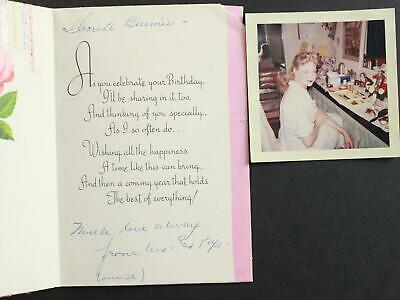 Dearest Bunnie -
As you celebrate your Birthday,
I'll be sharing in it, too,
And thinking of you specially,
As I so often do...
Wishing all the happiness
A time like this can bring,
And then a coming year that holds
The best of everything!
Much love always
from